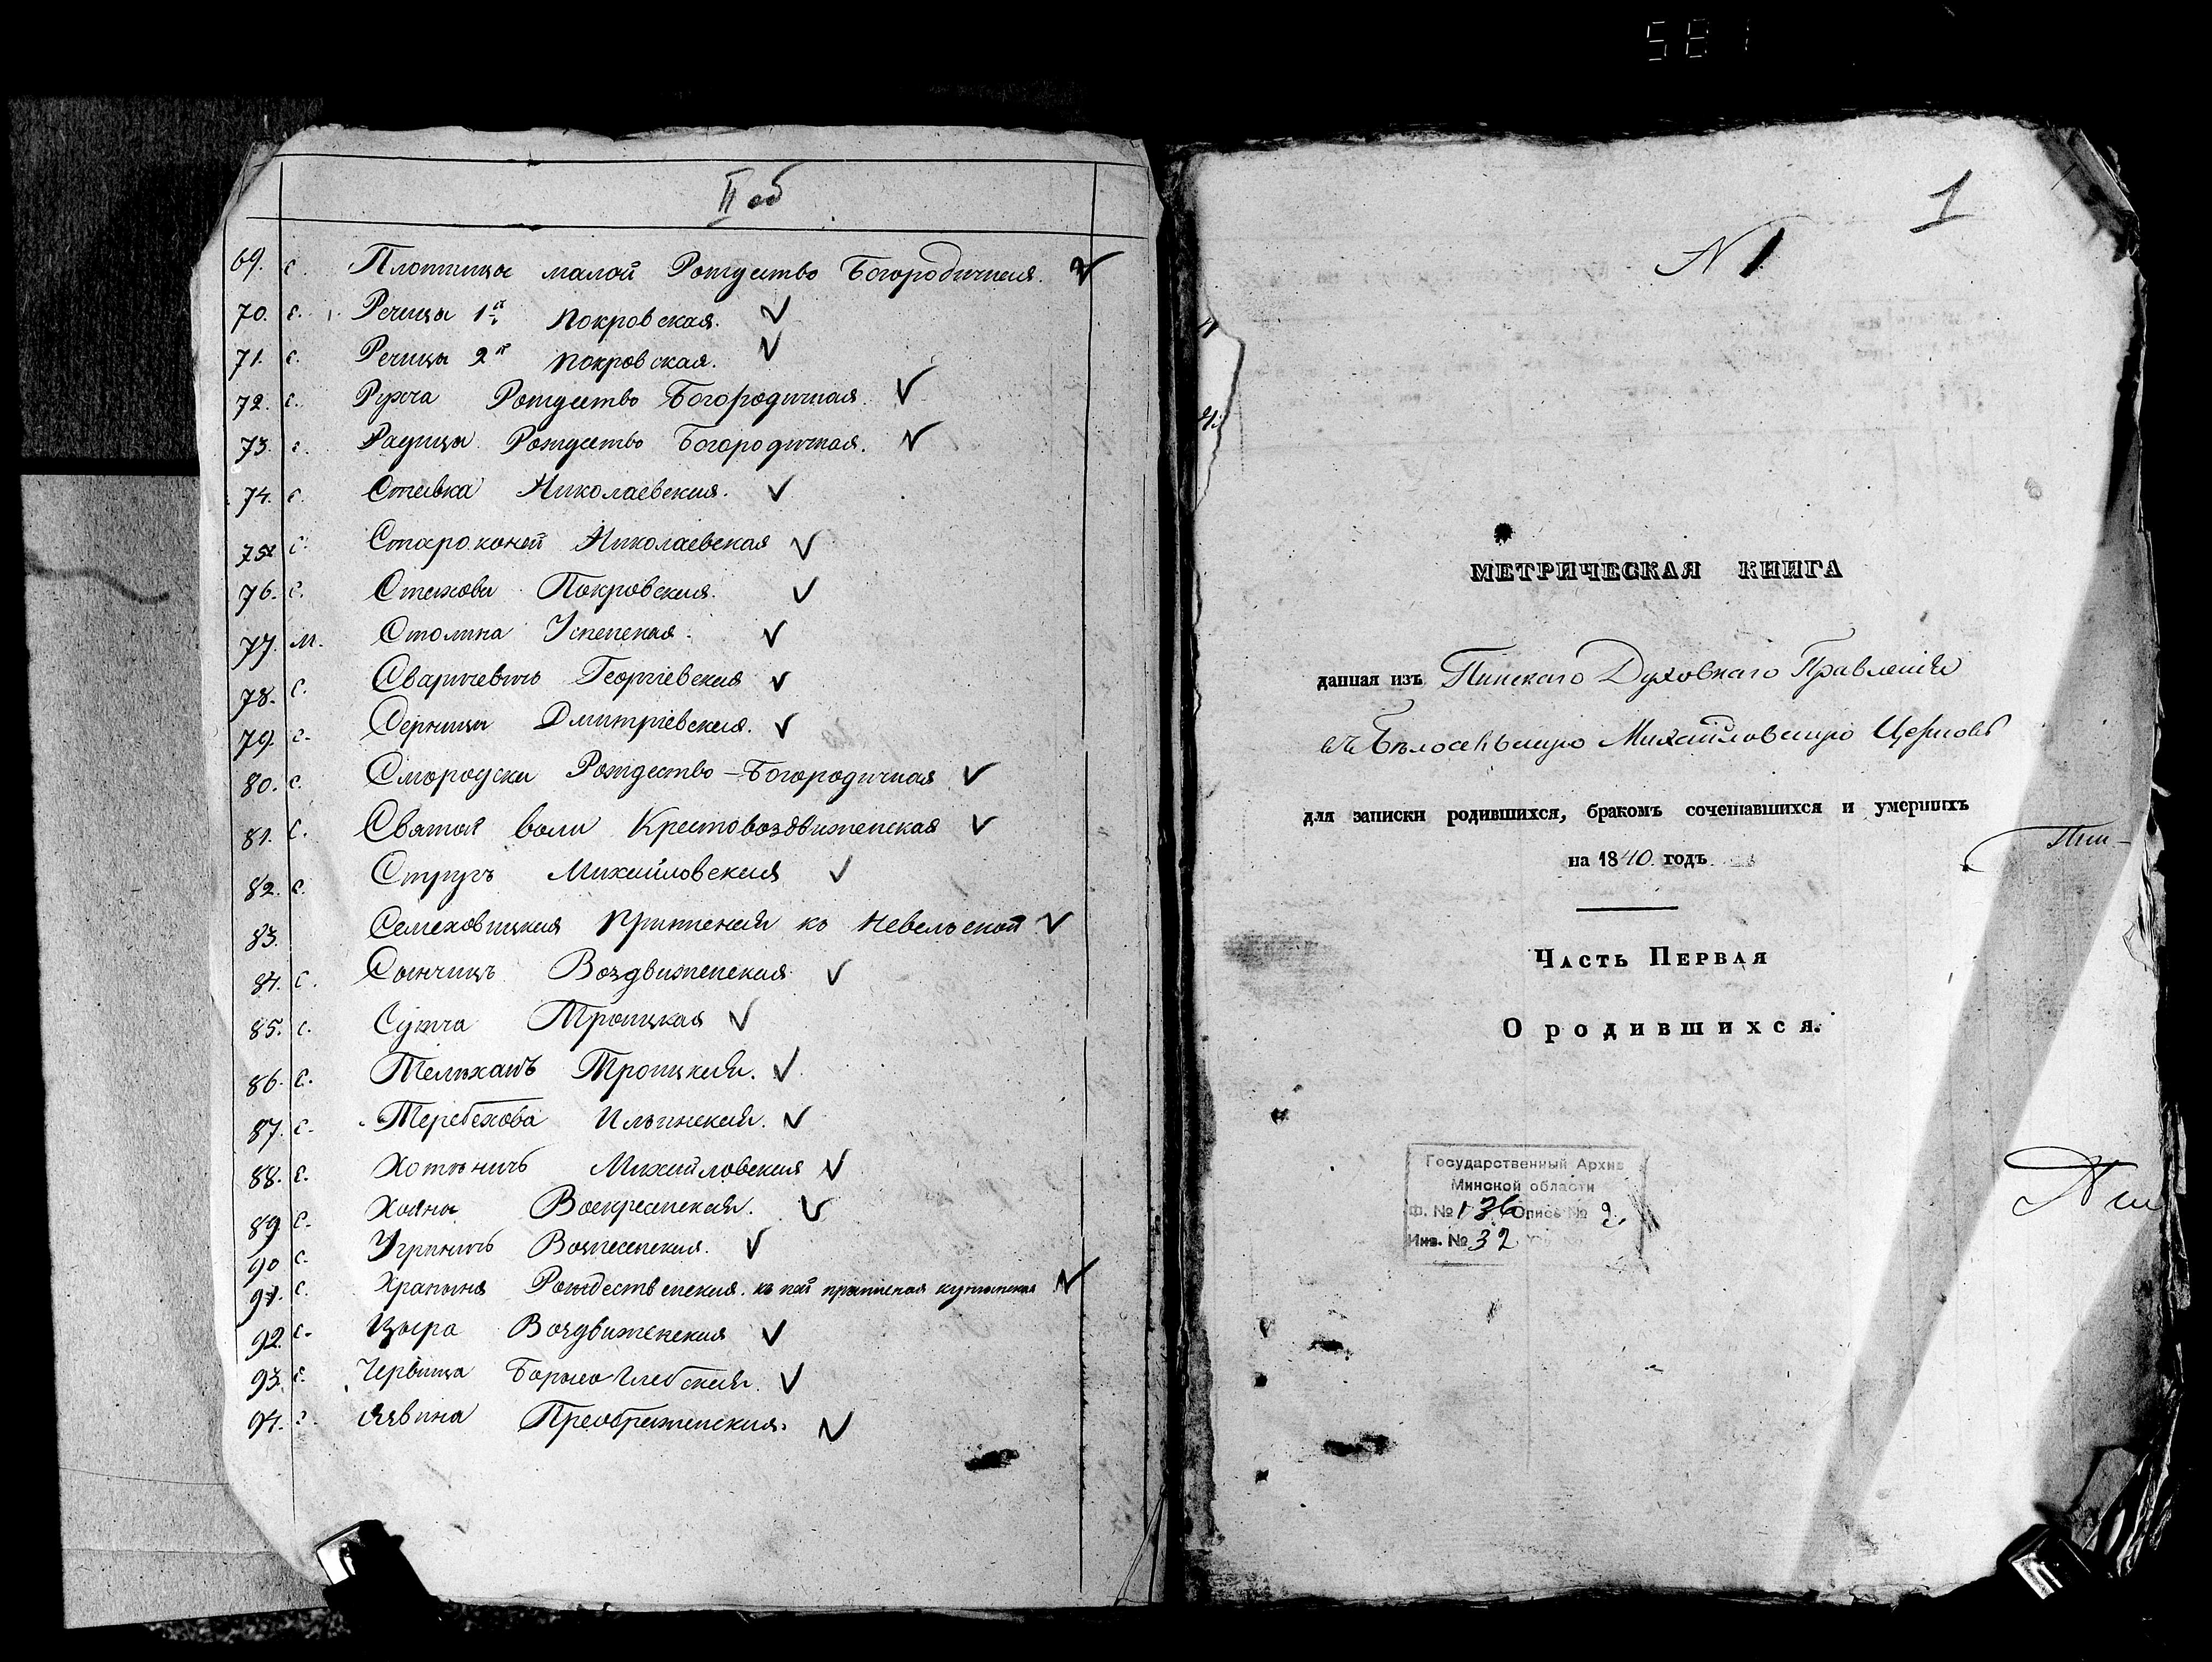 581
II об
69. с. Плотницы малой Рождество Богородичная.
70. с. Речицы 1й Покровская.
71. с. Речицы 2й Покровская.
72. с. Ручча Рождество Богородичная
73. с. Радчицы Рождество Богородичная.
74. с. Ставка Николаевская.
75. с. Староконей Николаевская
76. с. Стахова Покровская.
77. м. Столина Успенская.
78. с. Сварычевичь Георгіевская
79. с. Серницы Дмитріевская.
80. с. Смородска Рождество-Богородичная
81. с. Святой воли Крестовоздвиженская
82. с. Стругъ Михайловская
83. Семеховицкая Приписная къ Невельской
84. с. Сынчицъ Воздвиженская
85. с. Троицкая
86. с. Телеханъ Троицкая.
87. с. Теребехова Ильинская.
88. с. Хотыничъ Михайловская
89. с. Хойна Воскресенская.
90. с. Угриничь Вознесенская.
91. с. Храпына Рождественская. къ ней приписная
92. с. Цыра Воздвиженская
93. с. Червища Борисо Глебская.
94. с. Язвина Преображенская.
1
N 1
МЕТРИЧЕСКАЯ КНИГА
данная изъ Пинскаго Духовнаго Правленія
въ Бѣлосельскую Михайловскую Церковь
для записки родившихся, бракомъ сочетавшихся и умершихъ
на 1840 годъ
Часть Первая
О родившихся.
Государственный Архив
Минской области
Ф. № 136 Опись № 2.
Инв. № 32